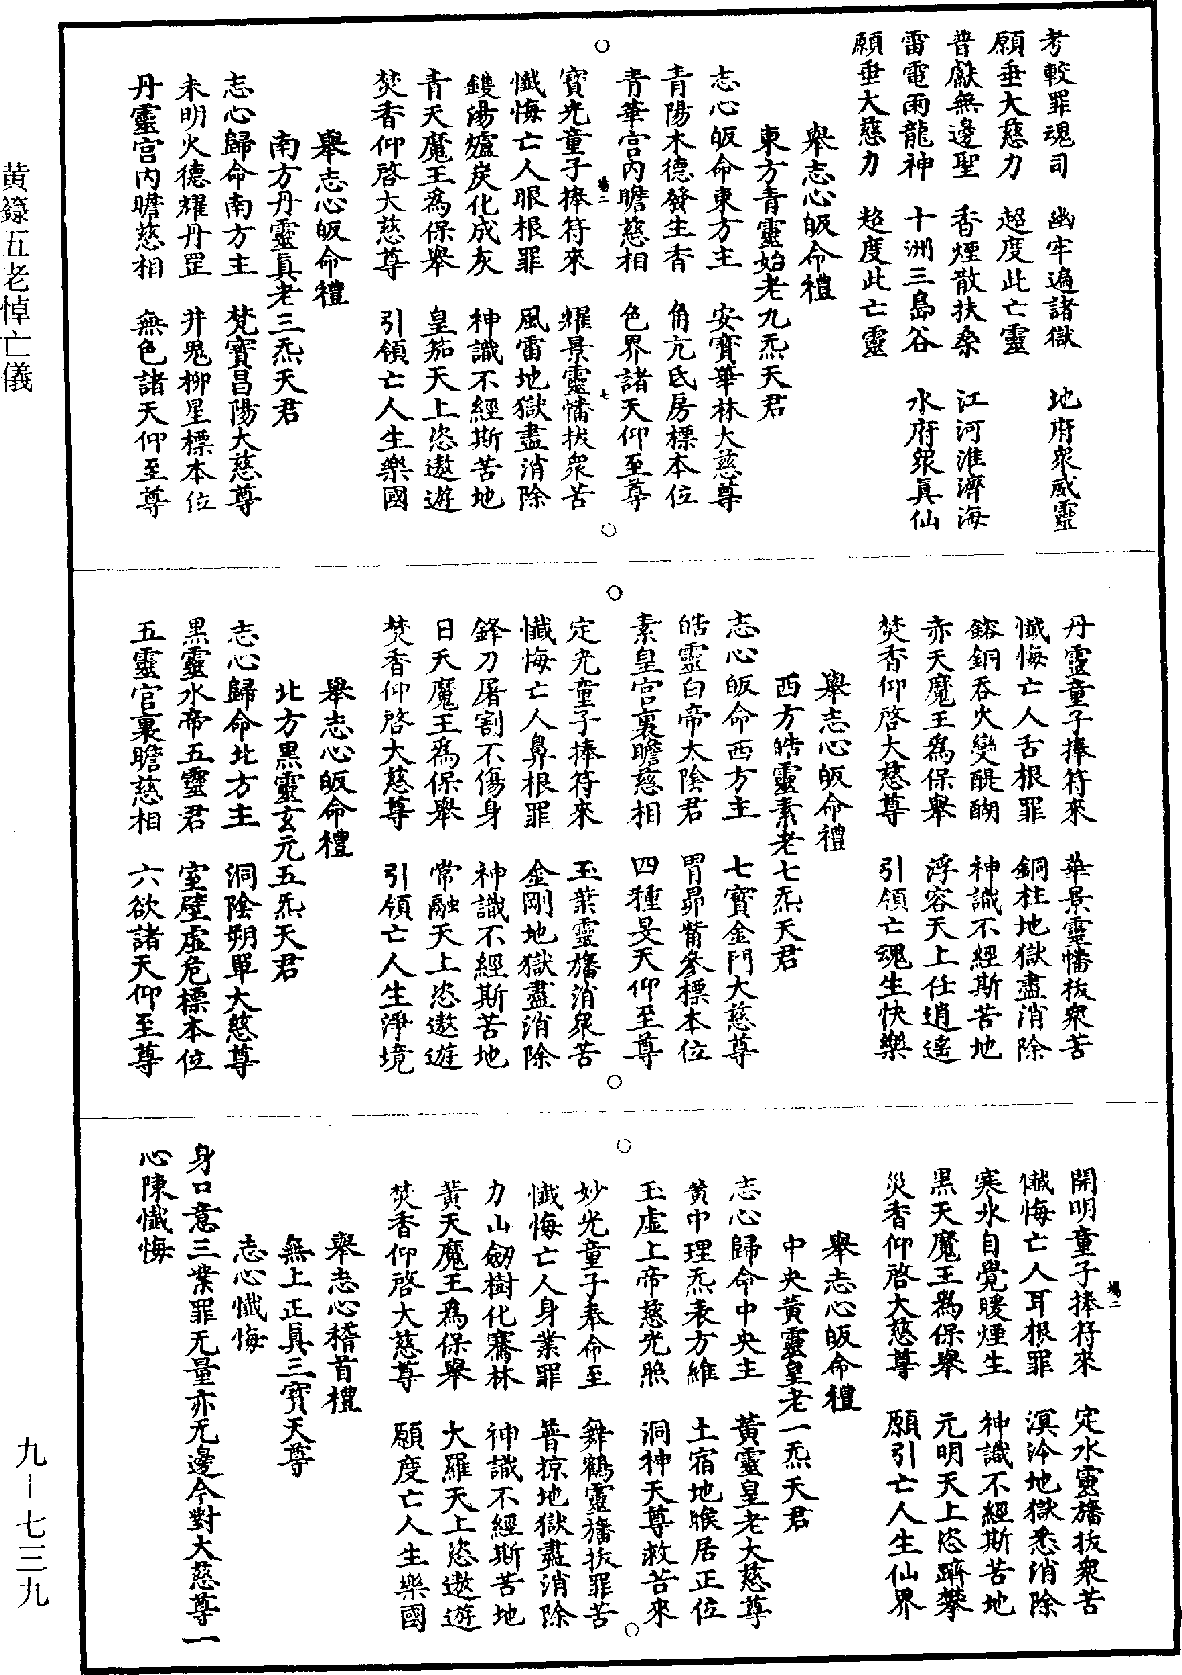 考較罪魂司　幽牢遍諸獄　地府衆威靈
願垂大慈力　超度此亡靈
普獻無邊聖　香煙散扶桑　江河淮濟海
雷電雨龍神　十洲三島谷　水府衆真仙
願垂大慈力　超度此亡靈
舉志心皈命禮
東方青靈始老九炁天君
志心皈命東方主　安寶華林大慈尊
青陽木德發生香　角亢氐房標本位
青華宫內瞻慈相　色界諸天仰至尊
寶光童子捧符來　耀景靈幡拔衆苦
懺悔亡人眼根罪　風雷地獄盡消除
鑊湯爐炭化成灰　神識不經斯苦地
青天魔王爲保舉　皇笳天上恣遨遊
焚香仰啓大慈尊　引領亡人生樂國
舉志心皈命禮
南方丹靈真老三炁天君
志心歸命南方主　梵寶昌陽大慈尊
朱明火德耀丹罡　井鬼柳星標本位
丹靈宫內瞻慈相　無色諸天仰至尊
丹靈童子捧符來　華景靈幡拔衆苦
懺悔亡人舌根罪　銅柱地獄盡消除
鎔銅吞火變醍醐　神識不經斯苦地
赤天魔王爲保舉　浮容天上任逍遙
焚香仰啓大慈尊　引領亡魂生快樂
舉志心皈命禮
西方皓靈素老七炁天君
志心皈命西方主　七寶金門大慈尊
皓靈白帝太陰君　胃昴觜參標本位
素皇宫裏瞻慈相　四種旻天仰至尊
定光童子捧符來　玉葉靈旛消衆苦
懺悔亡人鼻根罪　金剛地獄盡消除
鋒刀屠割不傷身　神識不經斯苦地
日天魔王爲保舉　常融天上恣遨遊
焚香仰啓大慈尊　引領亡人生淨境
舉志心皈命禮
北方黑靈玄元五炁天君
志心歸命北方主　洞陰朔單大慈尊
黑靈水帝五靈君　室壁虛危標本位
五靈宫裏瞻慈相　六欲諸天仰至尊
開明童子捧符來　定水靈旛拔衆苦
懺悔亡人耳根罪　溟泠地獄悉消除
寒氷自覺暖煙生　神識不經斯苦地
黑天魔王爲保舉　元明天上恣躋攀
焚香仰啓大慈尊　願引亡人生仙界
舉志心皈命禮
中央黃靈皇老一炁天君
志心歸命中央主　黃靈皇老大慈尊
黃中理炁表方維　土宿地睺居正位
玉虛上帝慈光照　洞神天尊救苦來
妙光童子奉命至　舞鶴靈旛拔罪苦
懺悔亡人身業罪　普掠地獄盡消除
力山劒樹化騫林　神識不經斯苦地
黃天魔王爲保舉　大羅天上恣遨遊
焚香仰啓大慈尊　願度亡人生樂國
舉志心稽首禮
無上正真三寶天尊
志心懺悔
身口意三業罪无量亦无邊今對大慈尊一
心陳懺悔
黄籙五老悼亡儀
九－七三九